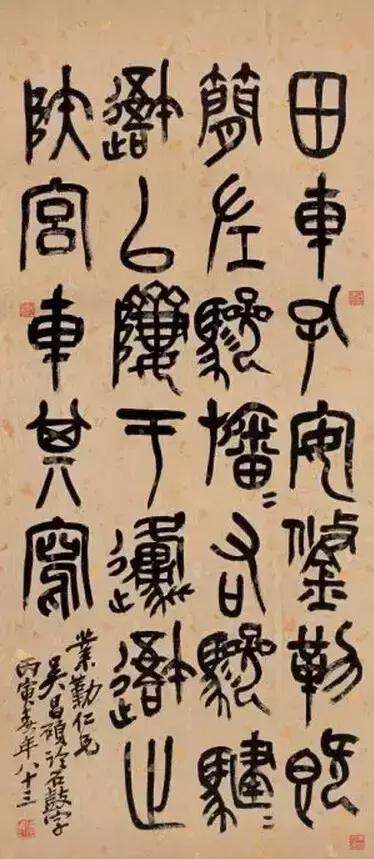 田車孔安鋚勒既
簡左驂旛〻右驂騝〻
䢦以隮于邍䢦止
陝宮車其寫
業勤仁兄
吳昌碩臨石鼓字
丙寅春年八十三